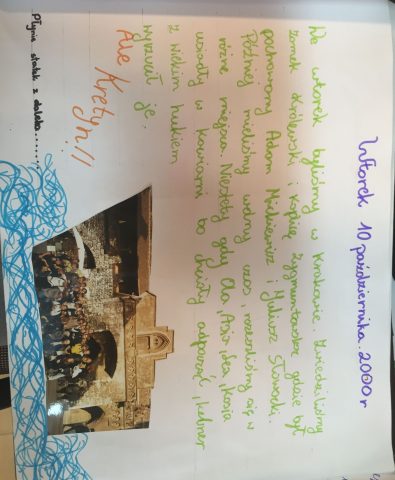 Wtorek 10 października 2000r
We wtorek byliśmy w Krakowie. Zwiedziliśmy
zamek Królewski i Kaplicę Zygmuntowską gdzie był
pochowany Adam Mickiewicz i Juliusz Słowacki.
Później mieliśmy wolny czas, rozeszliśmy się w
różne miejsca. Niestety gdy Ola, Asia, Iza, Kasia
usiadły w kawiarni bo chciały odpocząć, kelner
z wielkim hukiem
wyrzucił je.
Ale Kretyn!!
Płynie statek z daleka......